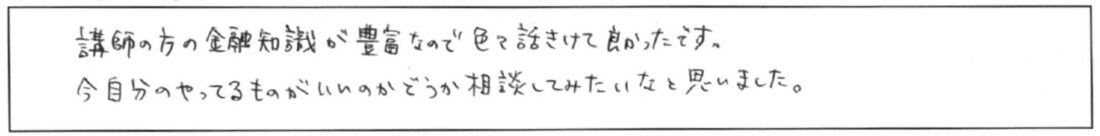 講師の方の金融知識が豊富なので色々話きけて良かったです。
今自分のやってるものがいいのかどうか相談してみたいなと思いました。